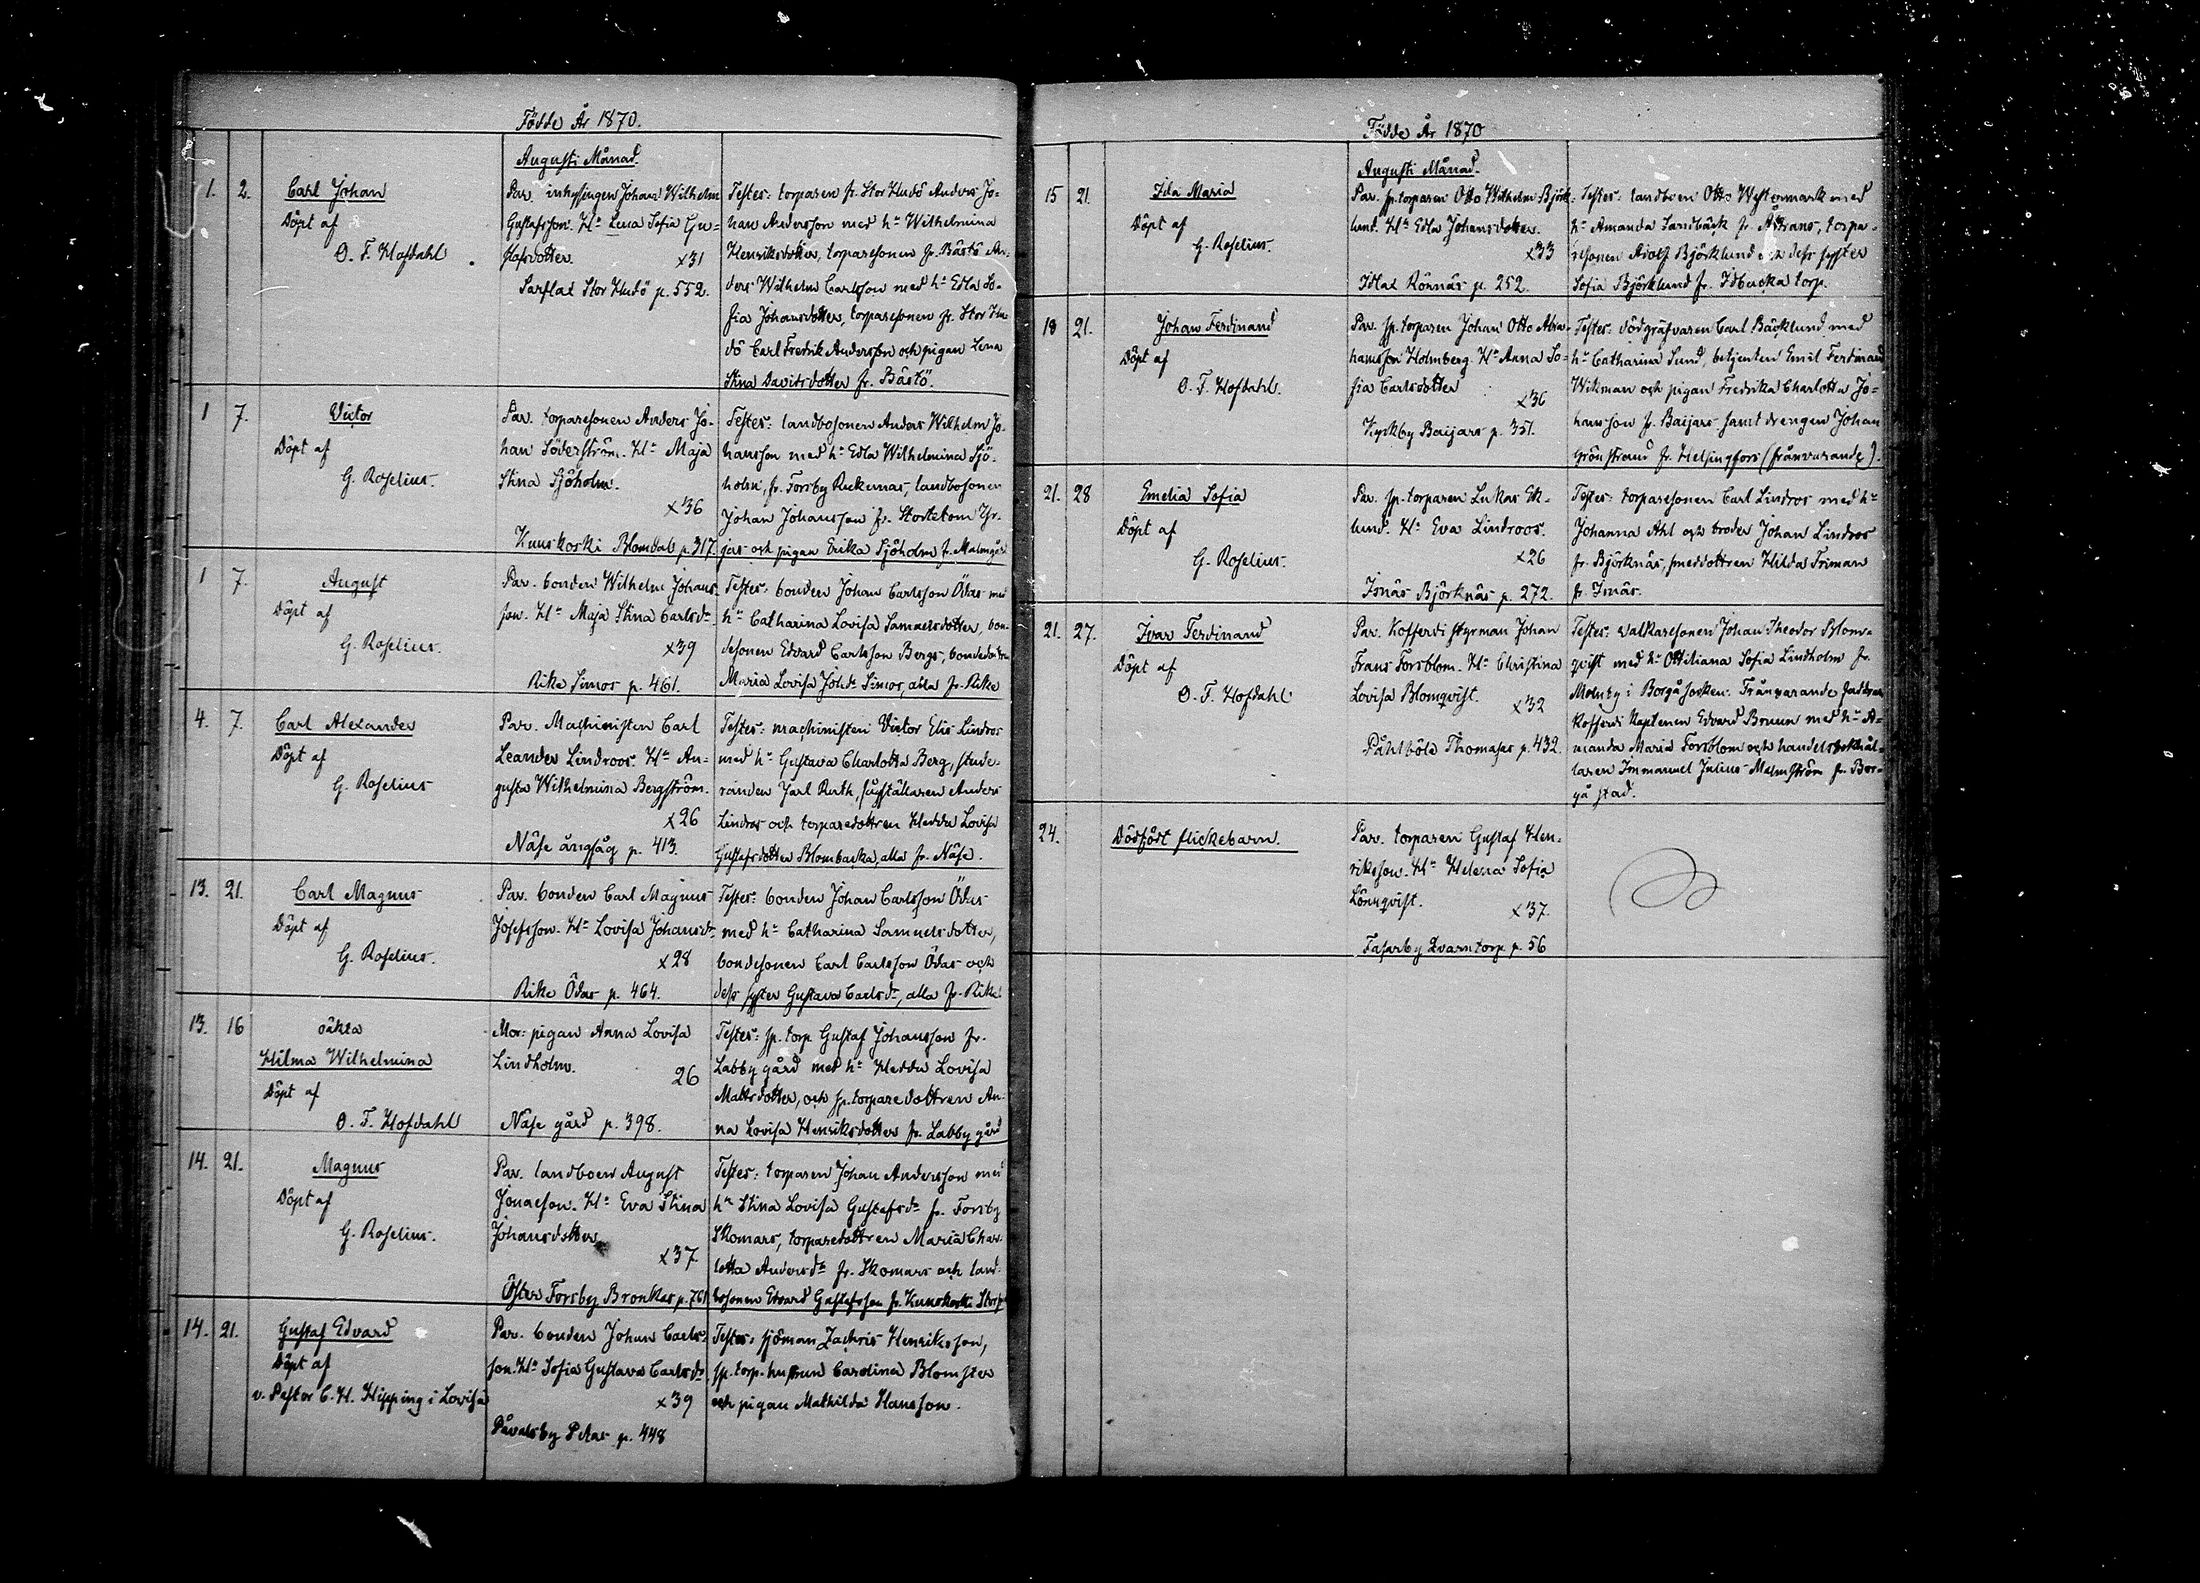 Födde År 1870.
Augusti Månad.
1. 2. Carl Johan
Döpt af
O. F. Hofdahl
Par. inhysingen Johan Wilhelm
Gustafsson. H:u Lena Sofia Gu-
stafsdotter. x31
Sarflax Stor Hudö p. 552.
Testes: torparen fr. Stor Hudö Anders Jo-
han Andersson med h:u Wilhelmina
Henriksdotter, torparesonen fr. Båstö An-
ders Wilhelm Carlsson med h:u Edla So-
fia Johansdotter, torparesonen fr. Stor Hu-
dö Carl Fredrik Andersson och pigan Lena
Stina Davidsdotter fr. Båstö.
1 7. Victor
Döpt af
G. Roselius.
Par. torparesonen Anders Jo-
han Söderström. H:u Maja
Stina Sjöholm.
x36
Kuuskoski Blomdal p. 317
Testes: landbosonen Anders Wilhelm Jo-
hansson med h:u Edla Wilhelmina Sjö-
holm, fr. Forsby Reckunas, landbosonen
Johan Johansson fr.
och pigan Erika Sjöholm fr. Malmgård
1 7. August
Döpt af
G. Roselius.
Par. bonden Wilhelm Johans-
son. H:u Maja Stina Carlsd:r
x39
Rike Simos p. 461.
Testes: bonden Johan Carlsson Ödas med
h:u Catharina Lovisa Samuelsdotter, bon-
desonen Edvard Carlsson Bergs, bondedottren
Maria Lovisa Johd:r Simos, alla fr. Rike
4. 7. Carl Alexander
Döpt af
G. Roselius
Par. Machinisten Carl
Leander Lindroos. H:u Au-
gusta Wilhelmina Bergström.
x26
Näse ångsåg p. 413.
Testes: machinisten Victor Elis Lindros
med h:u Gustava Charlotta Berg, stude-
randen Jarl Ruth, sågställaren Anders
Lindros och torparedottren Hedda Lovisa
Gustafsdotter Blombacka, alla fr. Näse.
13. 21. Carl Magnus
Döpt af
G. Roselius.
Par. bonden Carl Magnus
Josefsson. H:u Lovisa Johansd:r
x28
Rike Ödas p. 464.
Testes: bonden Johan Carlsson Ödas
med h:u Catharina Samuelsdotter,
bondesonen Carl Carlsson Ödas och
dess syster Gustava Carlsd:r, alla fr. Rike
13. 16 oäkta
Hilma Wilhelmina
Döpt af
O. F. Hofdahl
Mor: pigan Anna Lovisa
Lindholm. 26
Näse gård p. 398.
Testes: sp. torp. Gustaf Johansson fr.
Labby gård med h:u Hedda Lovisa
Mattsdotter, och sp. torparedottren An-
na Lovisa Henriksdotter fr. Labby gård
14. 21. Magnus
Döpt af
G. Roselius.
Par. landboen August
Jonasson. H:u Eva Stina
Johansdotter
x37.
Öster Forsby Bronkas p. 761
Testes: torparen Johan Andersson med
h:u Stina Lovisa Gustafsd:r fr. Forsby
Skomars, torparedottren Maria Char-
lotta Andersd:r fr. Skomars och land-
bosonen Edvard Gustafsson fr. Kuuskoski
14. 21. Gustaf Edvard
Döpt af
v. Pastor C. H. Hipping i Lovisa
Par. bonden Johan Carls-
son. H:u Sofia Gustava Carlsd:r
x39
Påvalsby Petas p. 448
Testes: sjöman Zachris Henriksson,
sp. torp. hustrun Carolina Blomster
och pigan Mathilda Hansson.
Födde År 1870
Augusti Månad.
15 21. Ida Maria
Döpt af
G. Roselius.
Par. sp. torparen Otto Wilhelm Björk-
lund. H:u Edla Johansdotter.
x33
Idlax Rönnäs p. 252.
Testes: landboen Otto Westermark med
h:u Amanda Sandbäck fr. torpa-
resonen Adolf Björklund och dess syster
Sofia Björklund fr. Idbacka torp.
18 21. Johan Ferdinand
Döpt af
O. F. Hofdahl.
Par. sp. torparen Johan Otto Abra-
hamsson Holmberg. H:u Anna So-
fia Carlsdotter
x36
Kyrkby Baijars p. 351.
Testes: dödgräfvaren Carl Bäcklund med
h:u Catharina Sund, betjenten Emil Ferdinand
Wikman och pigan Fredrika Charlotta Jo-
hansson fr. Baijars samt drengen Johan
Grönstrand fr. Helsingfors (frånvarande).
21. 28 Emelia Sofia
Döpt af
G. Roselius.
Par. sp. torparen Lukas Ek-
lund. H:u Eva Lindroos.
x26
Isnäs Björknäs p. 272.
Testes: torparesonen Carl Lindros med h:u
Johanna Ahl och broder Johan Lindros
fr. Björknäs, smeddottren Hilda Friman
fr. Isnäs.
21. 27. Ivar Ferdinand
Döpt af
O. F. Hofdahl
Par. Kofferdi styrman Johan
Frans Forsblom. H:u Christina
Lovisa Blomqvist. x32
Påhlböle Thomasas p. 432.
Testes: valkaresonen Johan Theodor Blom-
qvist med h:u Ottiliana Sofia Lindholm fr.
Molnby i Borgå socken. Frånvarande faddrar
Kofferdi Kaptenen Edvard Bruun med h:u A-
manda Maria Forsblom och handelsbokhål-
laren Immanuel Julius Malmström fr. Bor-
gå stad.
24. Dödfödt flickebarn.
Par. torparen Gustaf Hen-
riksson. H:u Helena Sofia
Lönnqvist.
x37.
Fasarby Qvarntorp p. 56